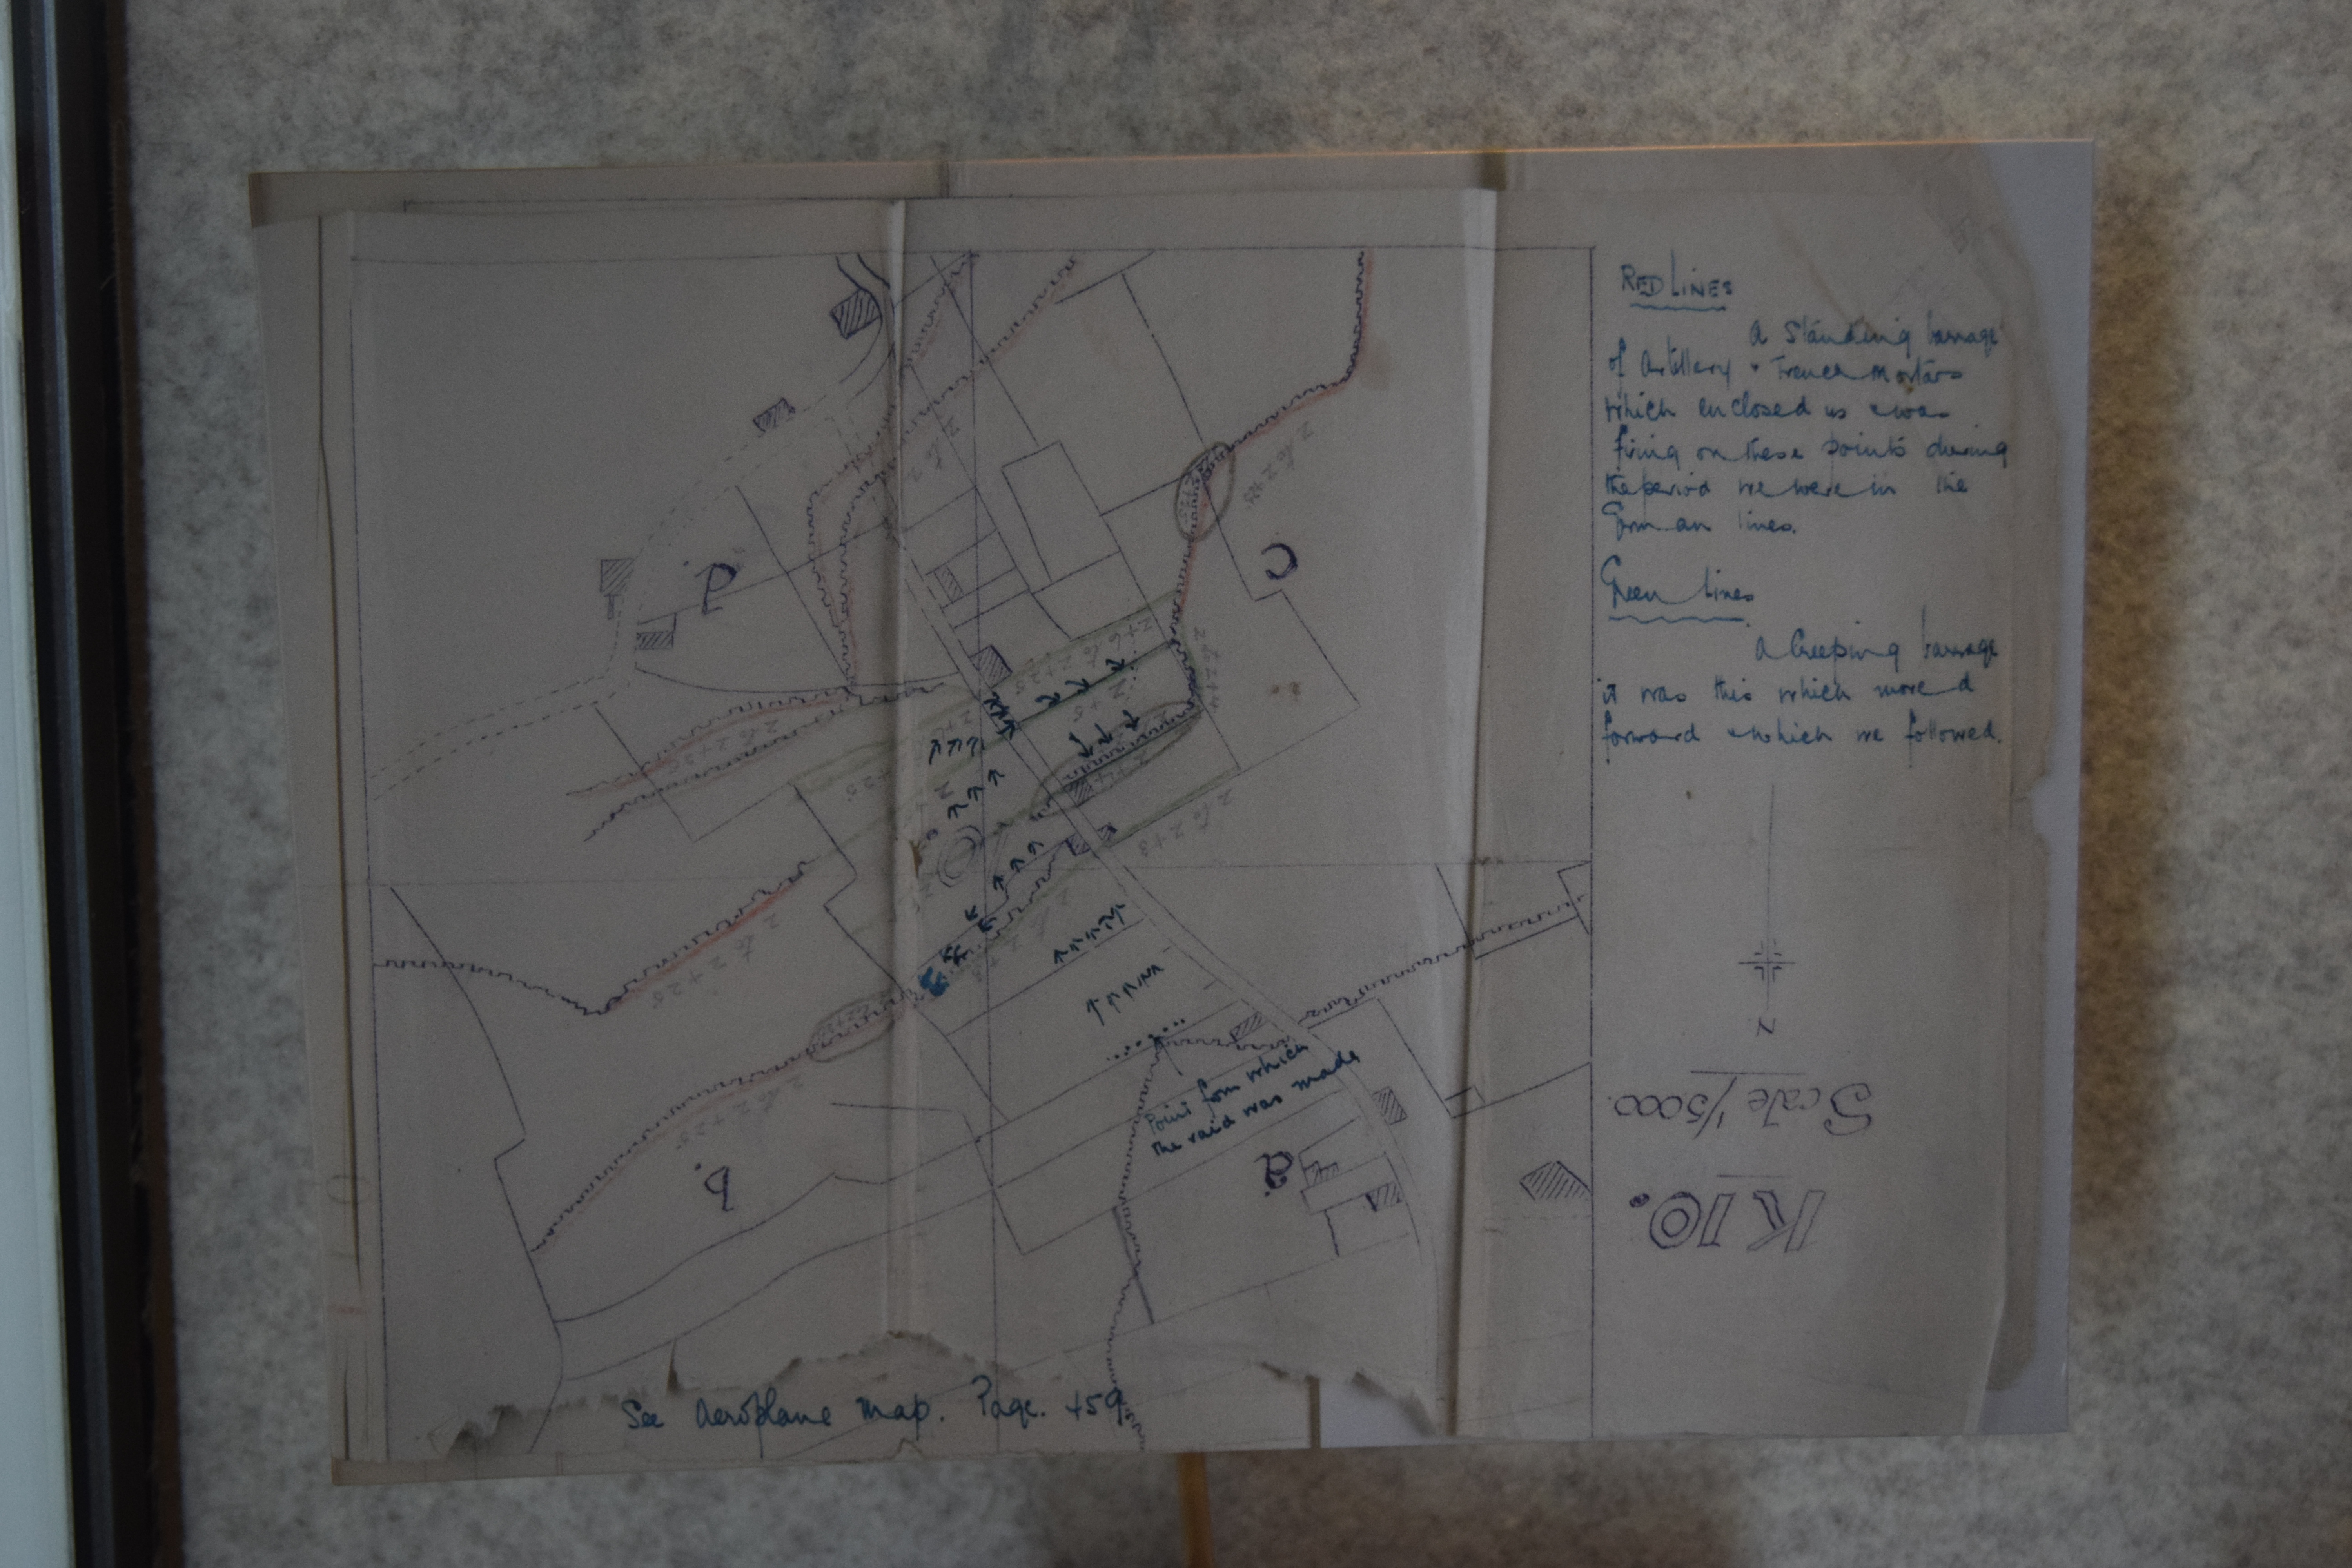 RED LINES
A Standing barrage
of Artillery + Trench Mortars
which enclosed us & was
firing on these points during
the period we were in the
German lines.
Green lines
A Creeping barrage
it was this which moved
forward & which we followed.
N
Scale 1/5000.
K 10.
d
c
b.
a.
Z to Z+25
Z to Z+25
Z to Z+25
Z to Z+3
Point from which
the raid was made
See Aeroplane map. Page. 459.